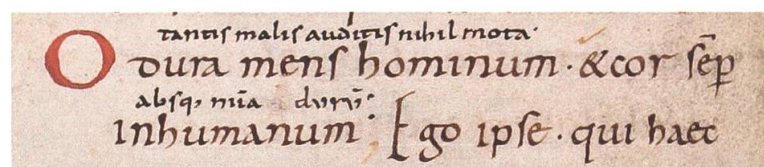 tantis malis auditis nihil mota·
O dura mens hominum · & cor sēp
absq; mīa durū:
inhumanum· Ego ipse · qui haec